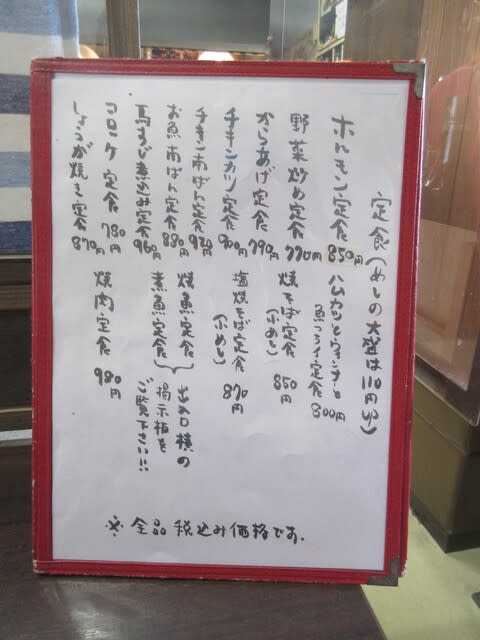 定食(めしの大盛は110円UP)
ホルモン定食 850円
野菜炒め定食 770円
からあげ定食 790円
チキンカツ定食 900円
チキン南ばん定食 920円
お魚南ばん定食 880円
馬すじ煮込み定食 960円
コロッケ定食 780円
しょうが焼き定食 870円
ハムカツとウィンナーと
魚フライ定食 800円
焼そば定食 850円
(小めし)
塩焼そば定食 870円
(小めし)
焼魚定食
煮魚定食
出入口横の
掲示板を
ご覧下さい!!
焼肉定食 980円
※全品税込み価格です.